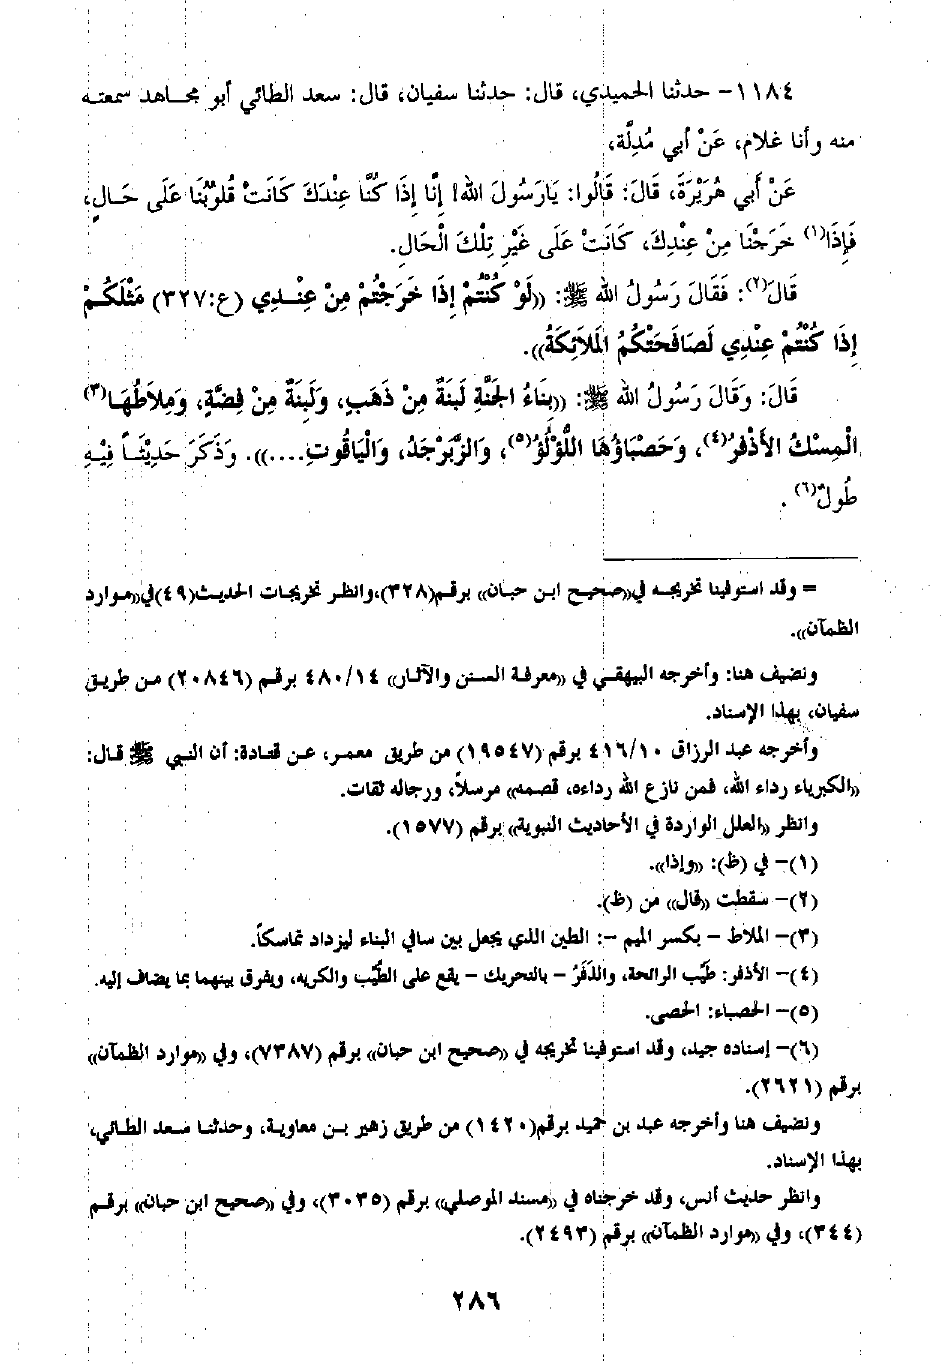 ١١٨٤- حدثنا الحميدي، قال: حدثنا سفيان، قال: سعد الطائي أبو مجاهد سمعته
منه وأنا غلام، عَنْ أبي مُدِلَّة،
عَنْ أَبِي هُرَيْرَةَ، قَالَ: قَالُوا: يَارَسُولَ الله! إِنَّا إِذَا كُنَّا عِنْدَكَ كَانَتْ قُلُوبُنَا عَلَى حَالٍ،
فَإِذَا(١) خَرَجْنَا مِنْ عِنْدِكَ، كَانَتْ عَلَى غَيْرِ تِلْكَ الْحَالِ.
قَالَ(٢): فَقَالَ رَسُولُ الله ﷺ: ((لَوْ كُنْتُمْ إِذَا خَرَجْتُمْ مِنْ عِنْدِي (ع:٣٢٧) مَثْلَكُمْ
إِذَا كُنْتُمْ عِنْدِي لَصَافَحَتْكُمُ الْمَلاَئِكَةُ)).
قَالَ: وَقَالَ رَسُولُ الله ﷺ: ((بِنَاءُ الْجَنَّةِ لَبِنَةٌ مِنْ ذَهَبٍ، وَلَبِنَةٌ مِنْ فِضَّةٍ، وَمِلاَطُهَا(٣)
الْمِسْكُ الأَذْفَرُ(٤)، وَحَصْبَاؤُهَا اللُّؤْلُؤُ(٥)، وَالزَّبَرْجَدُ، وَالْيَاقُوتِ....)). وَذَكَرَ حَدِيْثَاً فِيْهِ
طُولٌ(٦).
= وقد استوفينا تخريجه في((صحيح ابن حبان)) برقم(٣٢٨)،وانظر تخريجات الحديث(٤٩)في((موارد
الظمآن)).
ونضيف هنا: وأخرجه البيهقي في ((معرفة السنن والآثار)) ٤٨٠/١٤ برقم (٢٠٨٤٦) من طريق
سفيان، بهذا الإسناد.
وأخرجه عبد الرزاق ٤١٦/١٠ برقم (١٩٥٤٧) من طريق معمر، عن قتادة: أن النبي ﷺ قال:
((الكبرياء رداء الله، فمن نازع الله رداءه، قصمه)) مرسلاً، ورجاله ثقات.
وانظر ((العلل الواردة في الأحاديث النبوية)) برقم (١٥٧٧).
(١)- في (ظ): ((وإذا)).
(٢)- سقطت ((قال)) من (ظ).
(٣)- الملاط - بكسر الميم -: الطين الذي يجعل بين سافي البناء ليزداد تماسكاً.
(٤)- الأذفر: طَيّب الرائحة، والذَفَرُ - بالتحريك - يقع على الطَّيِّب والكريه، ويفرق بينهما بما يضاف إليه.
(٥)- الحصباء: الحصى.
(٦)- إسناده جيد، وقد استوفينا تخريجه في ((صحيح ابن حبان)) برقم (٧٣٨٧)، وفي ((موارد الظمآن))
برقم (٢٦٢١).
ونضيف هنا وأخرجه عبد بن حميد برقم(١٤٢٠) من طريق زهير بن معاوية، وحدثنا سعد الطائي،
بهذا الإسناد.
وانظر حديث أنس، وقد خرجناه في ((مسند الموصلي)) برقم (٣٠٣٥)، وفي ((صحيح ابن حبان)) برقم
(٣٤٤)، وفي ((موارد الظمآن)) برقم (٢٤٩٣).
٢٨٦